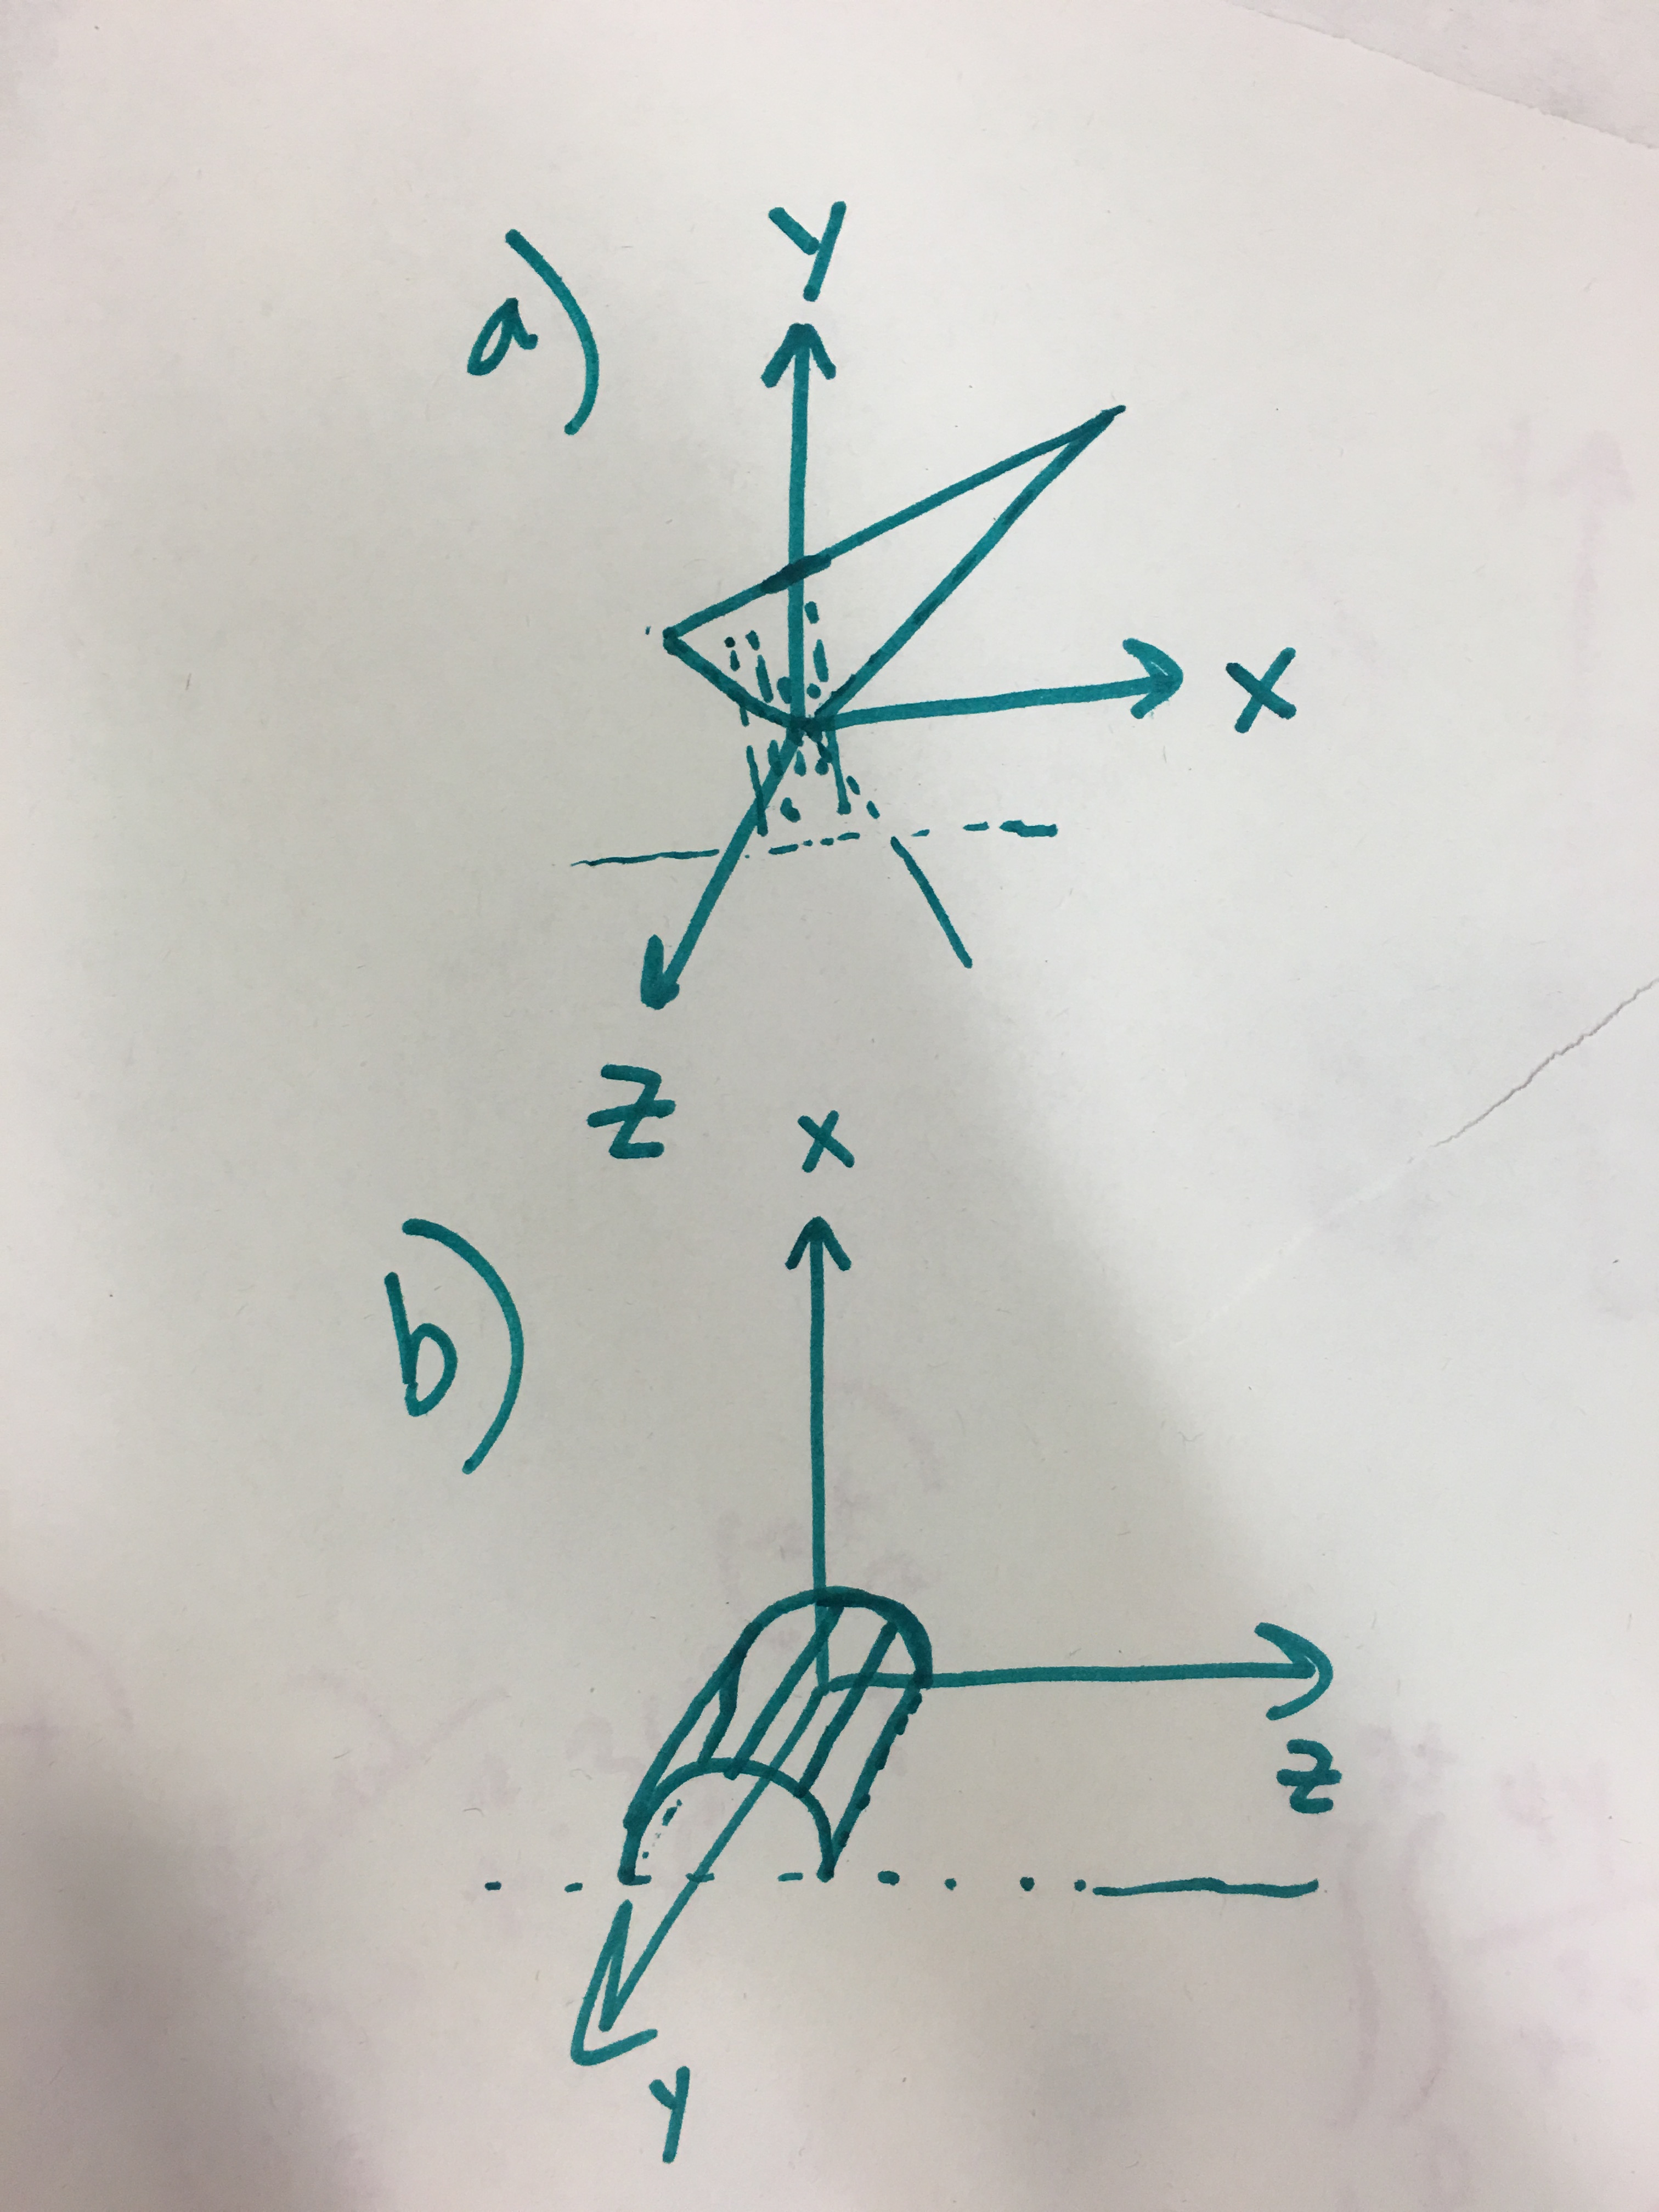 a)
Y
X
Z
b)
x
Z
y